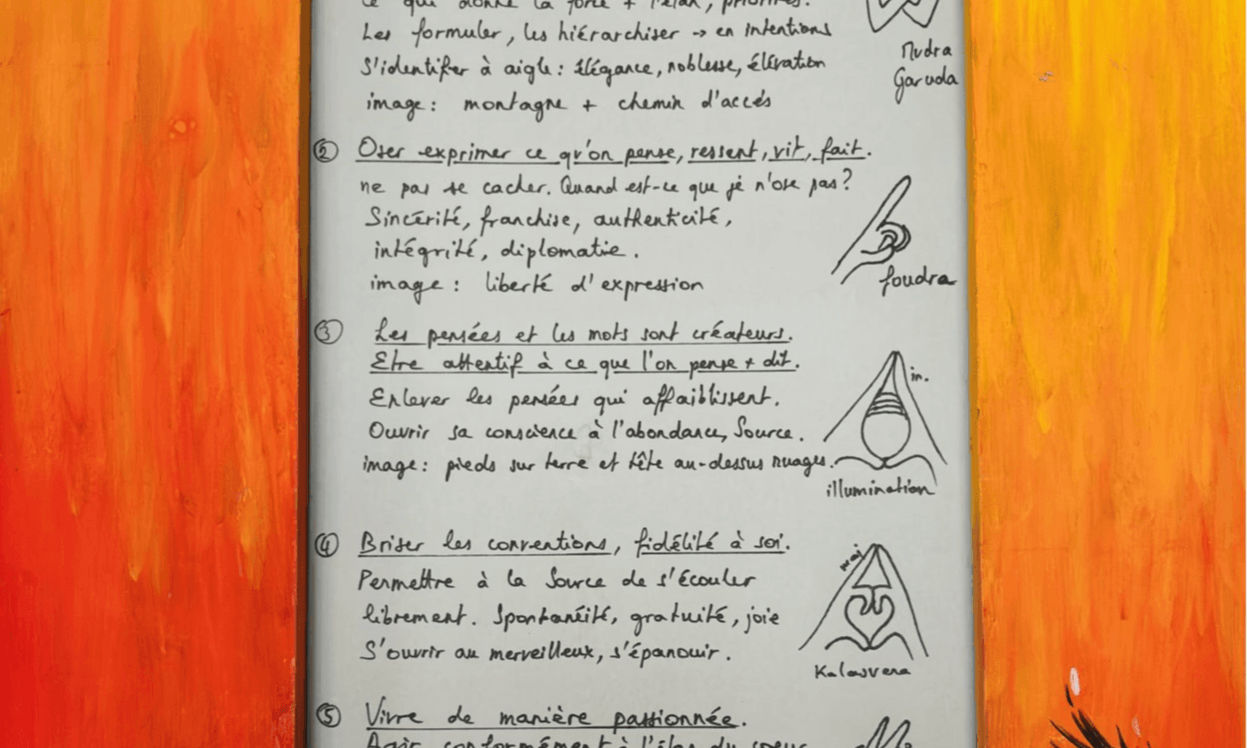 ce qui donne la force + l'élan, priorités.
Les formuler, les hiérarchiser → en intentions
S'identifier à aigle : élégance, noblesse, élévation
image : montagne + chemin d'accés
Mudra
Garuda
② Oser exprimer ce qu'on pense, ressent, vit, fait.
ne pas se cacher. Quand est-ce que je n'ose pas ?
Sincérité, franchise, authenticité,
intégrité, diplomatie.
image : liberté d'expression
foudra
③ Les pensées et les mots sont créateurs.
Etre attentif à ce que l'on pense + dit.
Enlever les pensées qui affaiblissent.
Ouvrir sa conscience à l'abondance, Source.
image : pieds sur terre et tête au-dessus nuages.
in.
illumination
④ Briser les conventions, fidélité à soi.
Permettre à la Source de s'écouler
librement. Spontanéité, gratuité, joie
S'ouvrir au merveilleux, s'épanouir.
maj
Kalasvena
⑤ Vivre de manière passionnée.
Agir conformément à l'élan du coeur